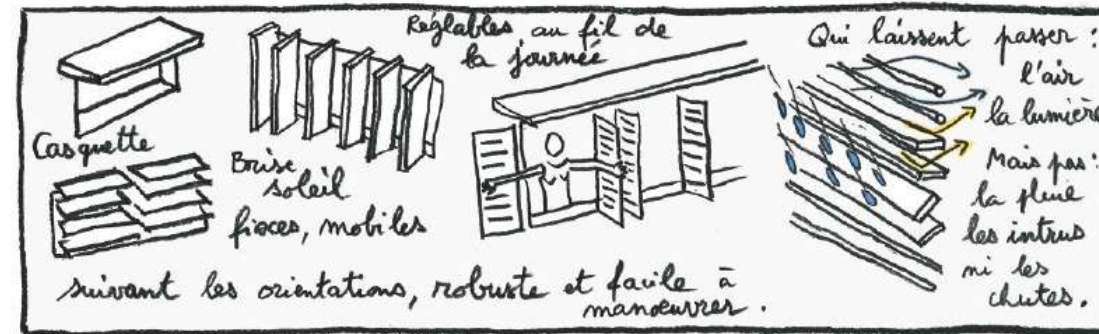 Casquette
Brise
soleil
fixes, mobiles
Réglables au fil de
la journée
Qui laissent passer :
l'air
la lumière
Mais pas :
la pluie
les intrus
ni les
chutes.
suivant les orientations, robuste et facile à
manœuvrer.